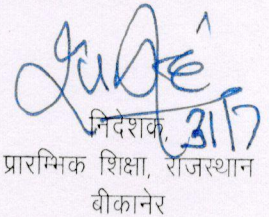 निदेशक, 31/7
प्रारम्भिक शिक्षा, राजस्थान
बीकानेर